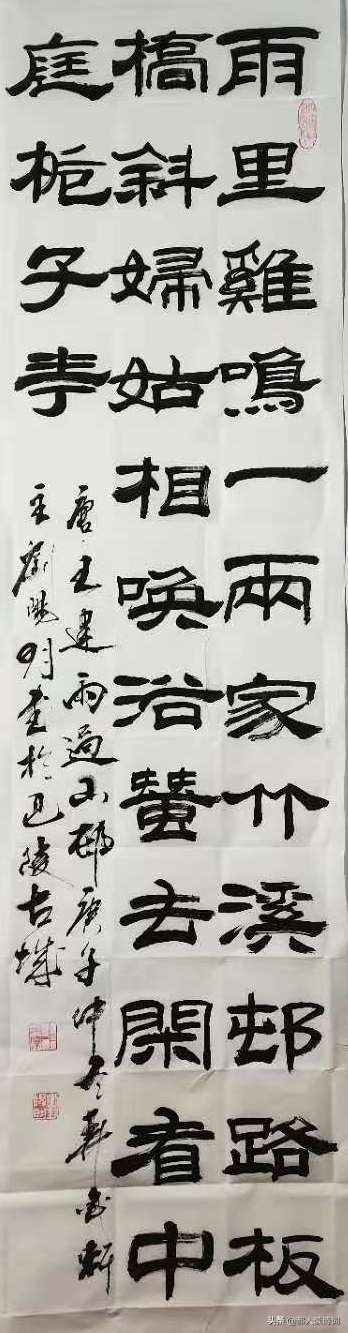 雨里雞鳴一兩家竹溪邨路板
橋斜婦姑相喚浴蠶去閑看中
庭栀子花
唐王建雨過山邨庚子仲冬
主劉 明書於巴陵古城
头条